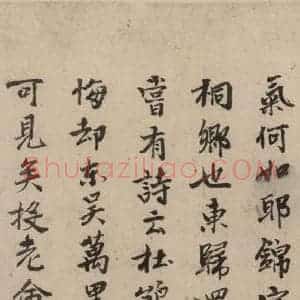 氣何如耶錦
桐鄉也東歸
嘗有詩云杜鵑
悔却東吳萬里
可見矣投老
shufaziliao.COM